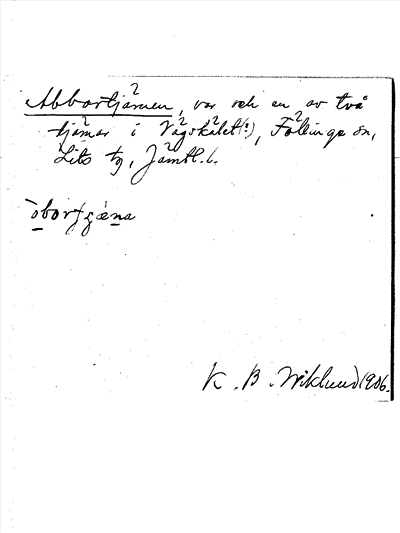 Abbortjärnen, var och en av två
tjärnar i Vågskalet(?), Föllinge sn,
Lits tg, Jämtl. l.
K. B. Wiklund 1906.